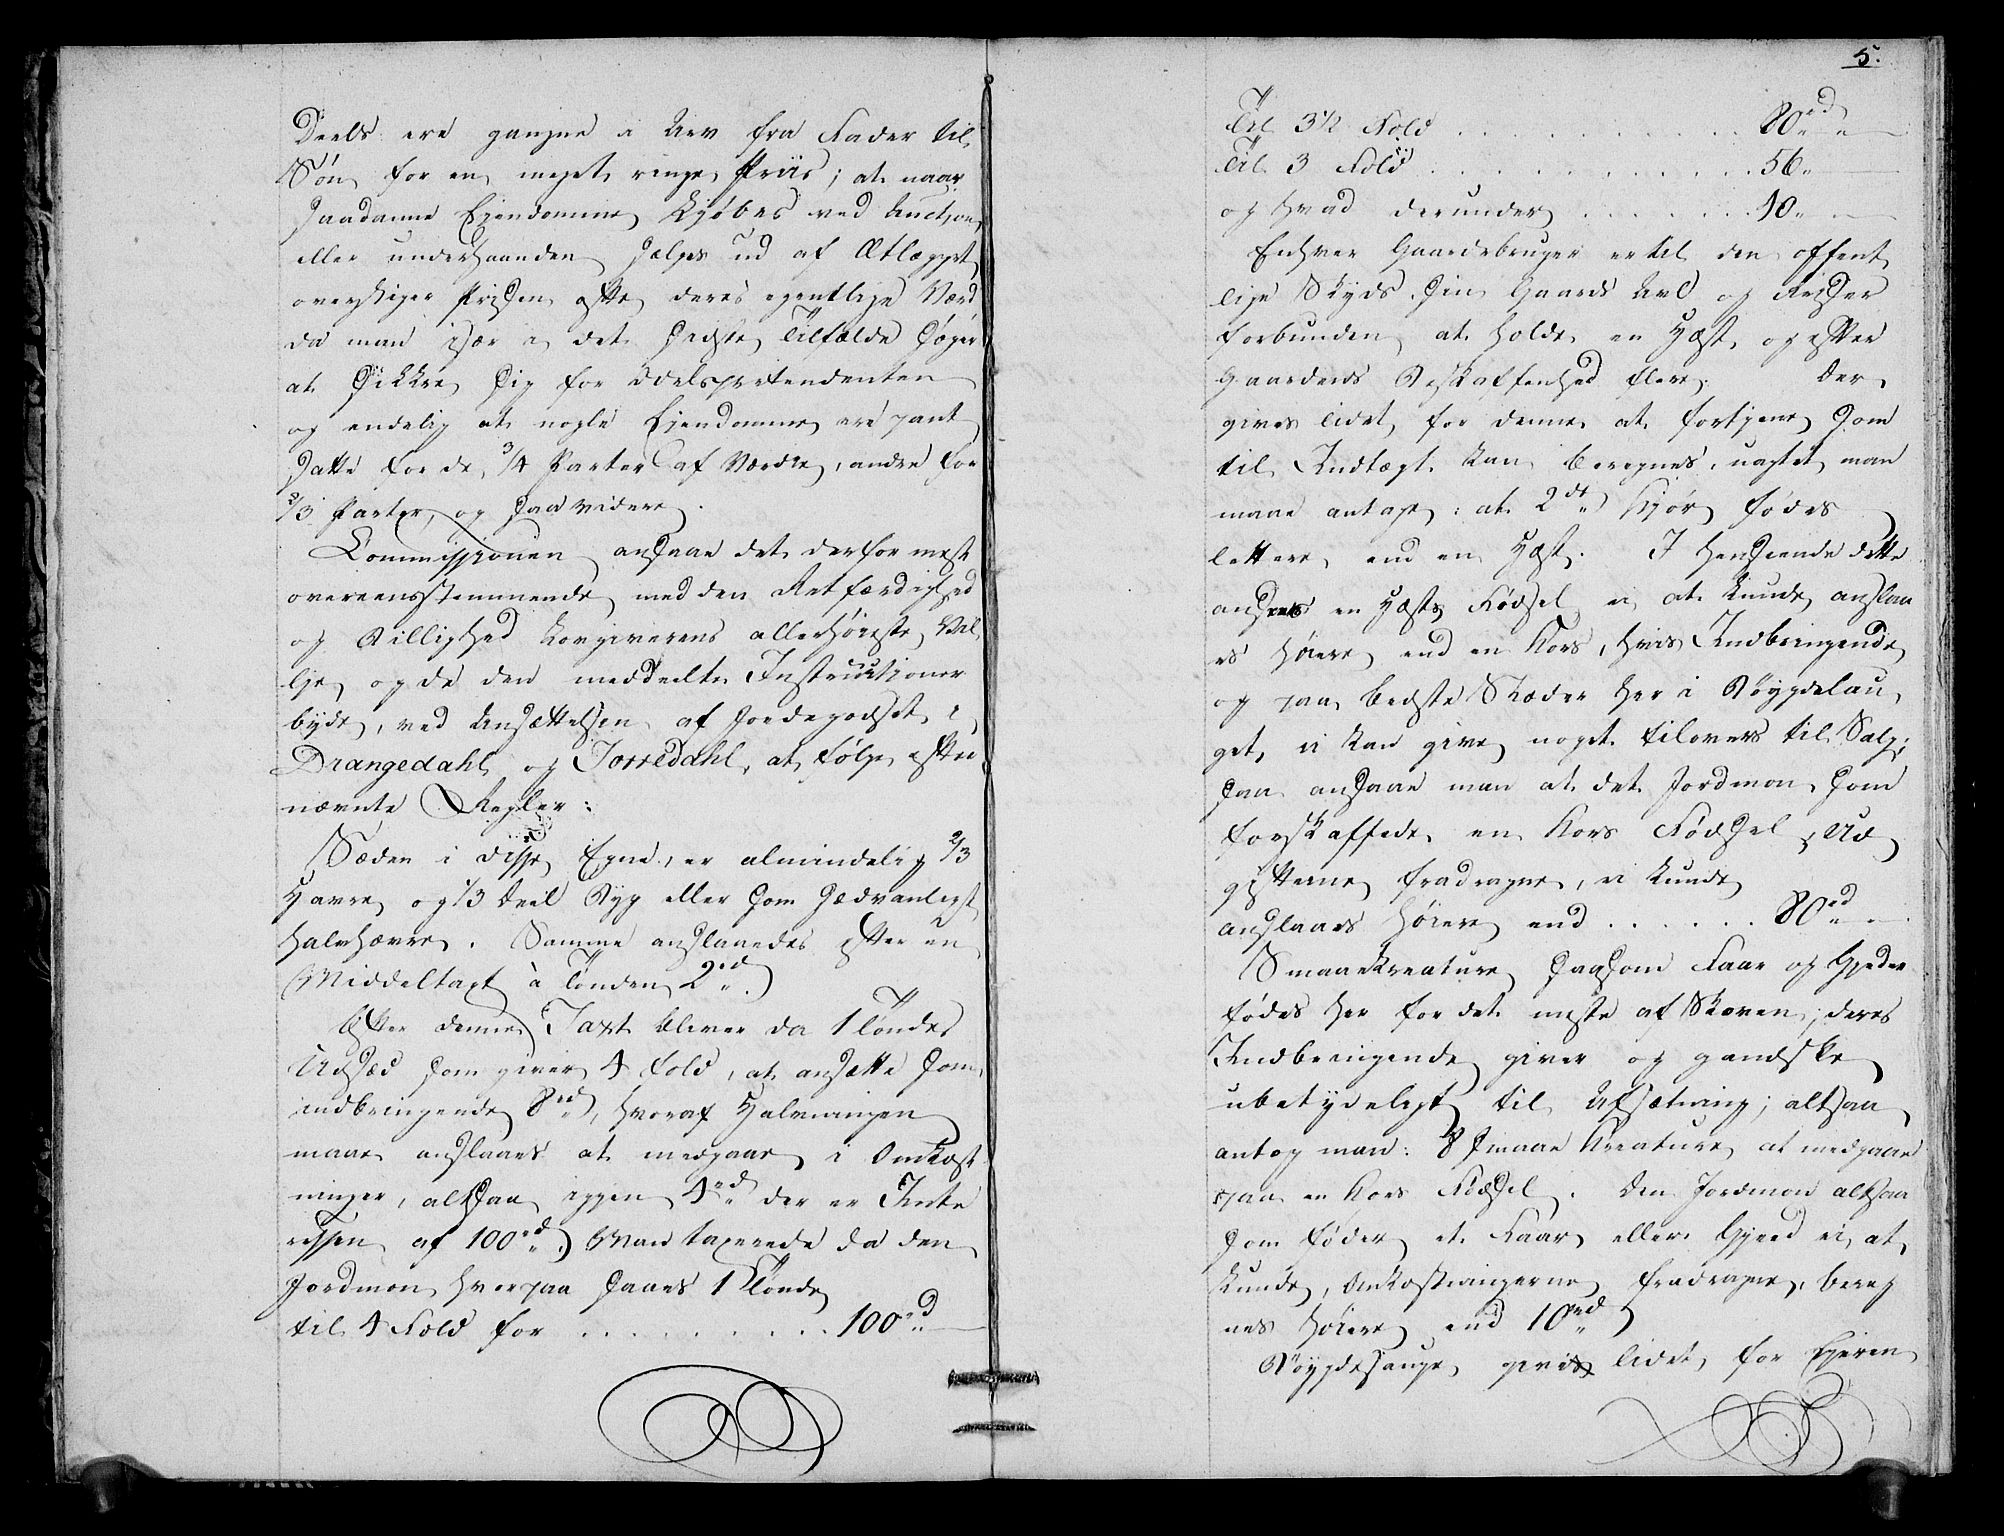 Deels ere gangne i Arv fra Fader til
Søn for en meget ringe Priis; at naar
saadanne Ejendomme kjøbes ved Auction
eller underhaanden sælges ud af Ætlægget,
overstiger Prisen ofte deres egentlige Værd
da man især i det sidste Tilfælde søger
at sikkre sig for Odelsprætendenten
og endelig at nogle Eiendomme ere pant
satte for de 3/4 Parter af Værdie, andre for
2/3 Parter, og saa videre.
Commissionen ansaae det derfor mest
overeensstemmende med den Retfærdighed
og Billighed Lovgiverens allerhøieste Vil
lje, og de den meddeelte Instructioner
byde, ved Ansættelsen af Jordegodset i
Drangedahl og Torredahl, at følge efter
nævnte Regler:
Sæden i disse Egne, er almindelig 2/3
Havre og 1/3 Deel Byg eller som sædvanligst
halvhavre. Samme anslaaedes efter en
Middeltaxt à Tønden 2 rd.
Efter denne Taxt bliver da 1 Tøndes
Udsæd som giver 4 fold, at ansætte som
indbringende 8 rd, hvoraf Halvningen
maae anslaaes at medgaae i Omkost
ninger, altsaa igjen 4 rd der er Inte
ressen af 100 rd. Man taxerede da den
Jordmon hvorpaa saaes 1 Tønde
til 4 Fold for . . . . . . . . . 100 rd
5.
Til 3 1/2 Fold . . . . . . . . . . 80 rd
Til 3 Fold . . . . . . . . . . . 56
og hvad derunder . . . . . . . 40
Enhver Gaardsbruger er til den offent
lige Skyds, sin Gaards Avl og Reiser
forbunden at holde en Hæst, og efter
Gaardens Beskaffenhed flere. Der
gives lidet for denne at fortjene som
til Indtægt kan beregnes, uagtet man
maae antage: at 2de Kjør fødes
lettere end en Hæst. I Henseende dette
ansees en Hæsts Fødsel ei at kunde anslaa
es høiere end en Koes, hvis Indbringende
og paa bedste Stæder her i Bøygdelau
get, ei kan give noget tilovers til Salg;
saa ansaae man at det Jordmon som
forskaffede en Koes Fødsel, Ud
gifterne fradragne, ei kunde
anslaaes høiere end . . . . . . 80 rd
Smaaekreature saasom Faar og Gjeder
fødes her for det meste af Skoven; deres
Indbringende giver og gandske
ubetydeligt til Afsætning; altsaa
antog man: 8 smaae Kreature at medgaae
paa en Koes Fødsel. Den Jordmon altsaa
som føder et Faar eller Gjeed ei at
kunde, Omkostningerne fradragne, bereg
nes høiere end 10 rd
Bøygdesauge give lidet for Ejeren